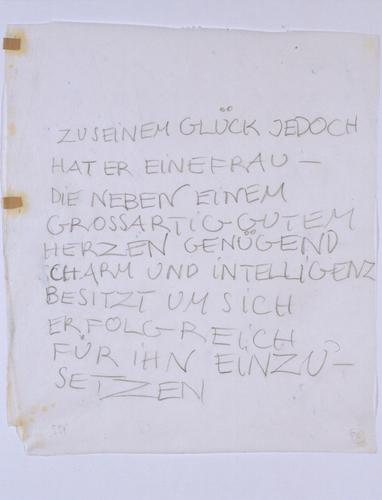 ZU SEINEM GLÜCK JEDOCH
HAT ER EINE FRAU –
DIE NEBEN EINEM
GROSSARTIG GUTEM
HERZEN GENÜGEND
CHARM UND INTELLIGENZ
BESITZT UM SICH
ERFOLGREICH
FÜR IHN EINZU–
SETZEN